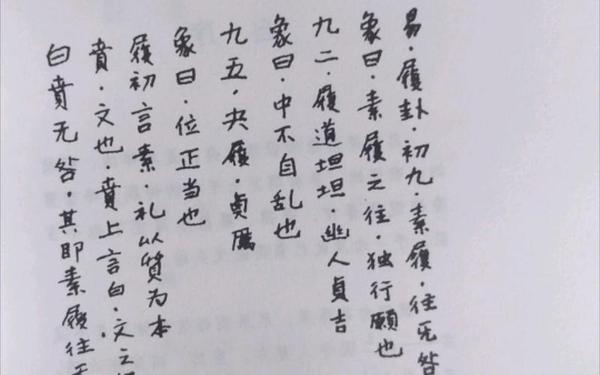 易·履卦·初九·素履·往无咎
象曰·素履之往·独行願也
九二·履道坦坦幽人貞吉
象曰·中不自乱也
九五·夬履·貞厲
象曰·位正当也
履初言素礼以質为本
賁·文也·賁上言白·文之
白賁无咎·其即素履往